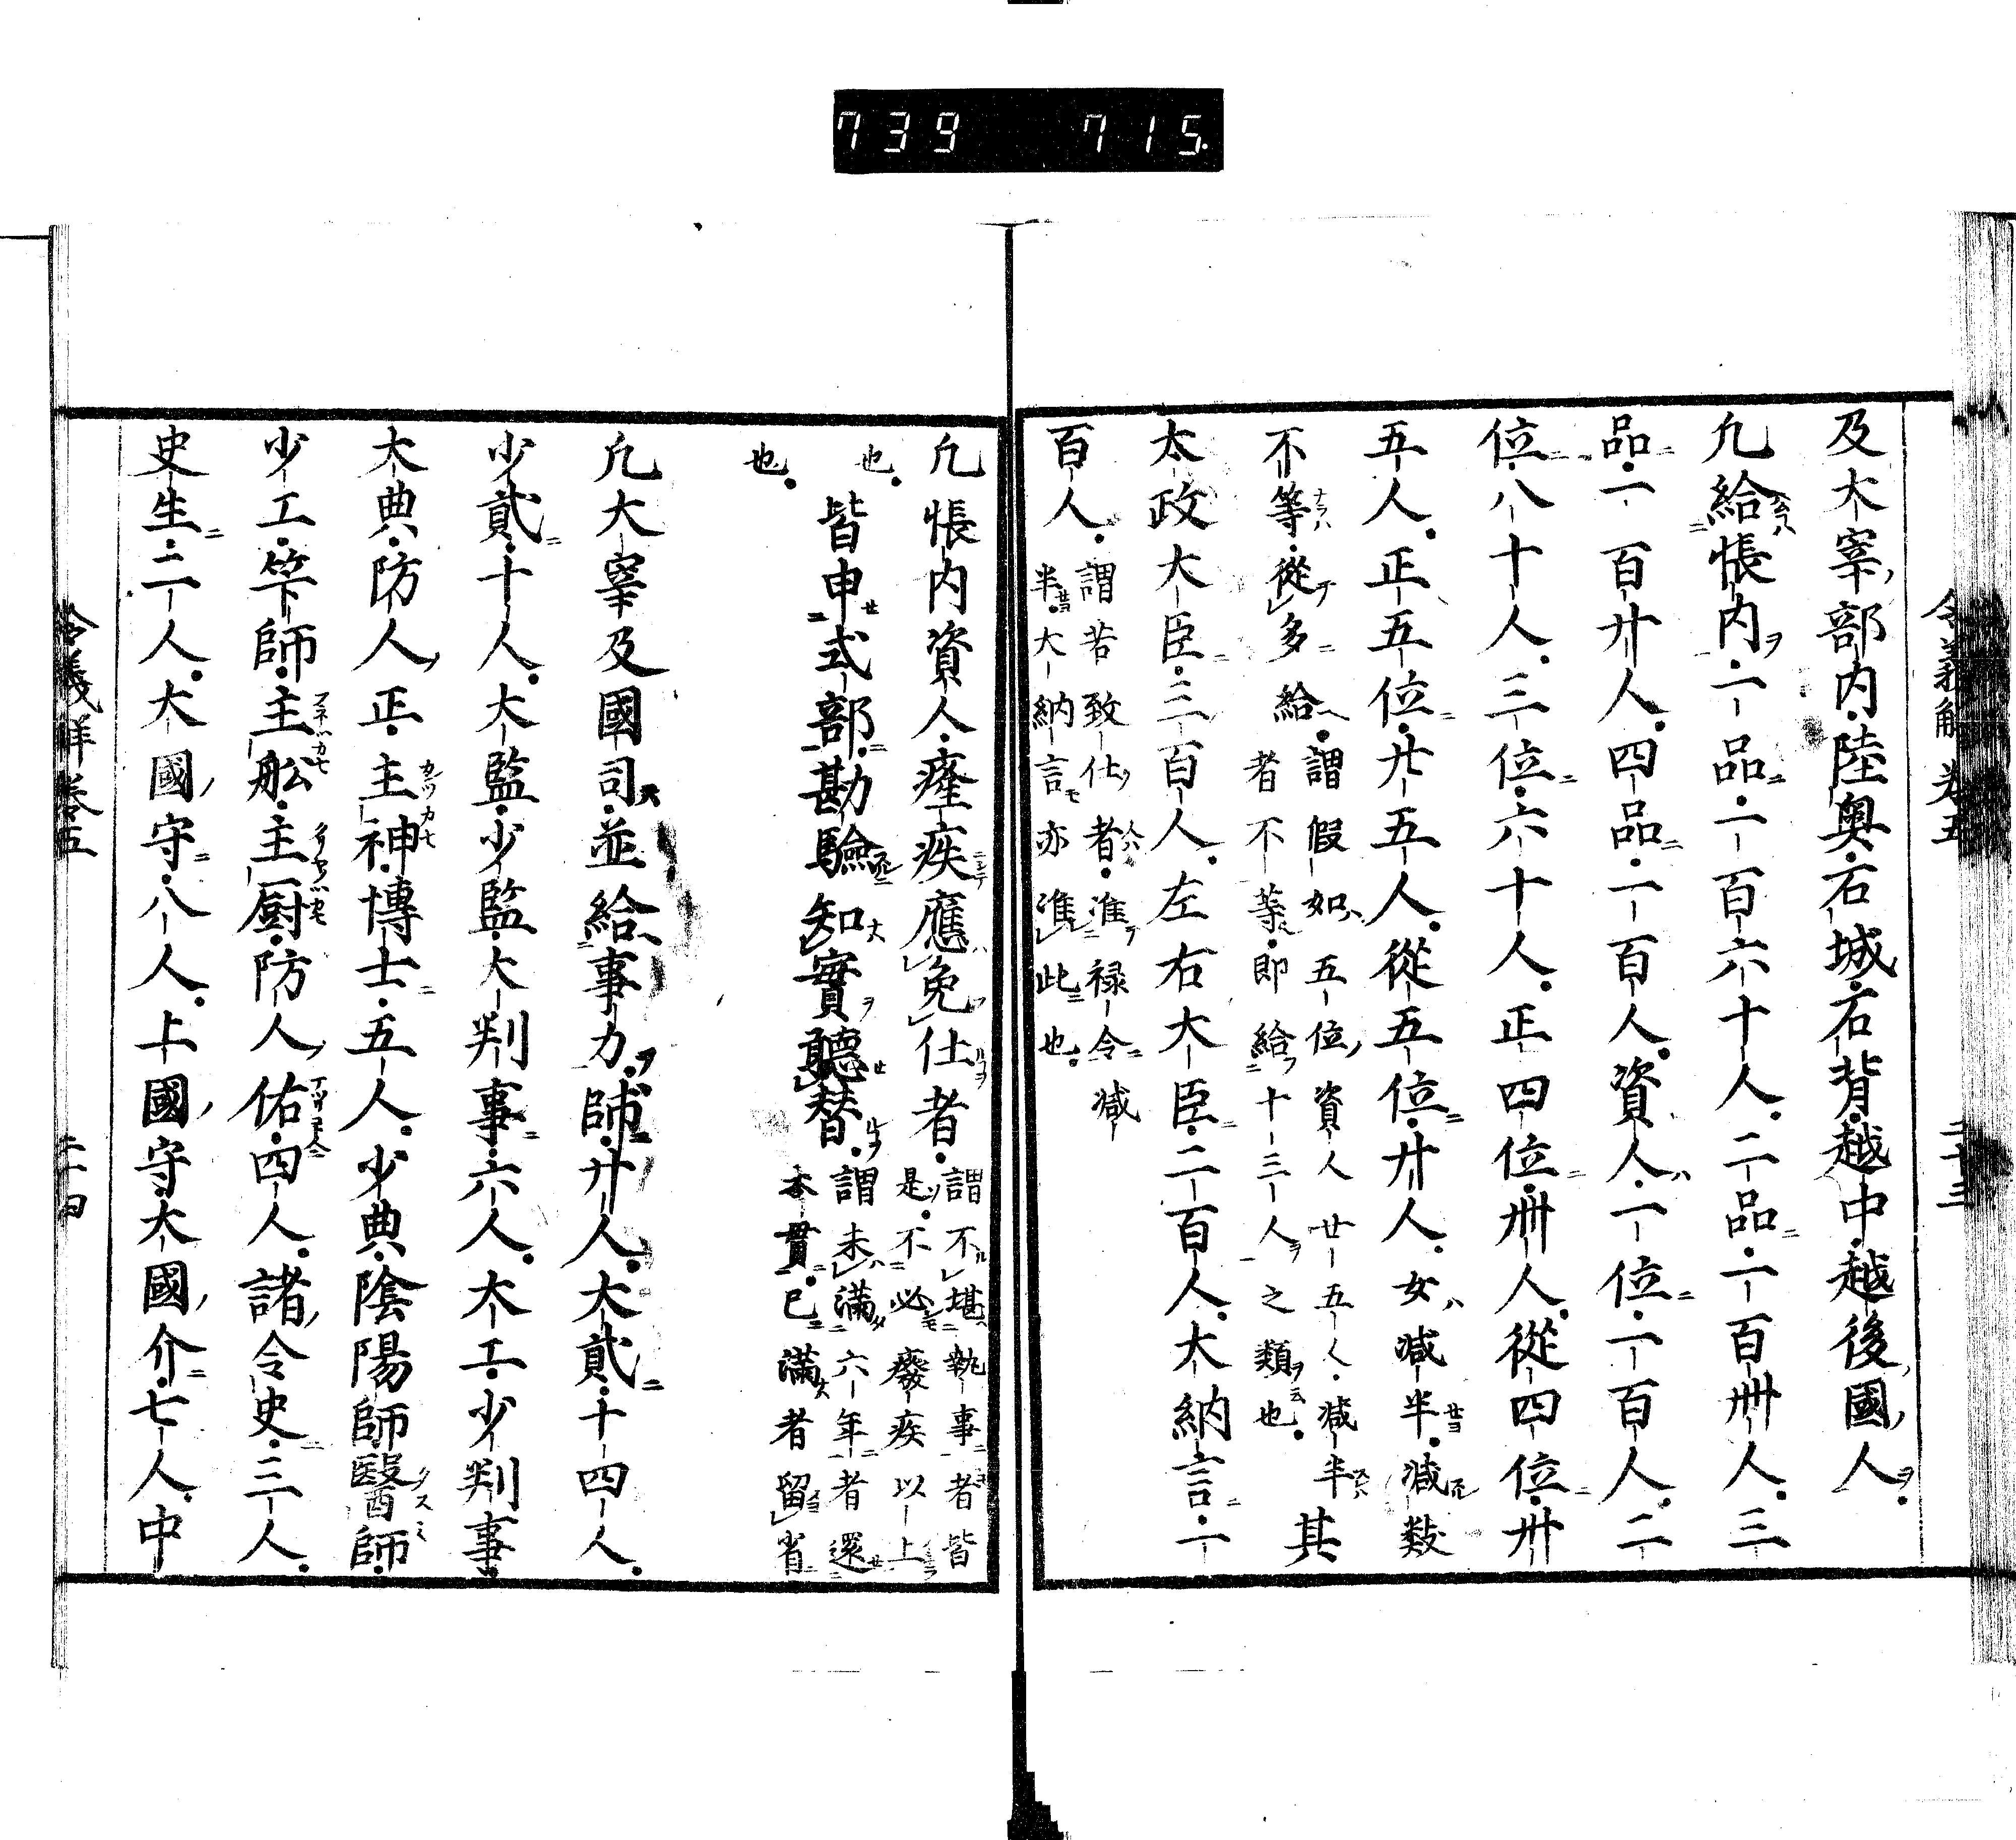 739 715.
令義解 卷五 二十三
及大宰部内陸奥石城石背越中越後國人
凡給帳内一品一百六十人二品一百卌人三
品一百廿人四品一百人資人一位一百人二
位八十人三位六十人正四位卌人從四位卅
五人正五位廿五人從五位廿人女減半減數
不等從多給謂假如五位資人廿五人減半其
者不等即給十三人之類也
太政大臣三百人左右大臣二百人大納言一
百人謂若致仕者准禄令減
半大納言亦准此也
凡帳内資人瘞疾應免仕者謂不堪執事者皆
是不必癈疾以上
也
皆申式部勘驗知實聽替謂未滿六年者還
本貫已滿者留省
也
凡大宰及國司並給事力師廿人大貳十四人
少貳十人大監少監大判事六人大工少判事
大典防人正主神博士五人少典陰陽師醫師
少工竿師主舩主厨防人佑四人諸令史三人
史生二人大國守八人上國守大國介七人中
令義解卷五 二十四